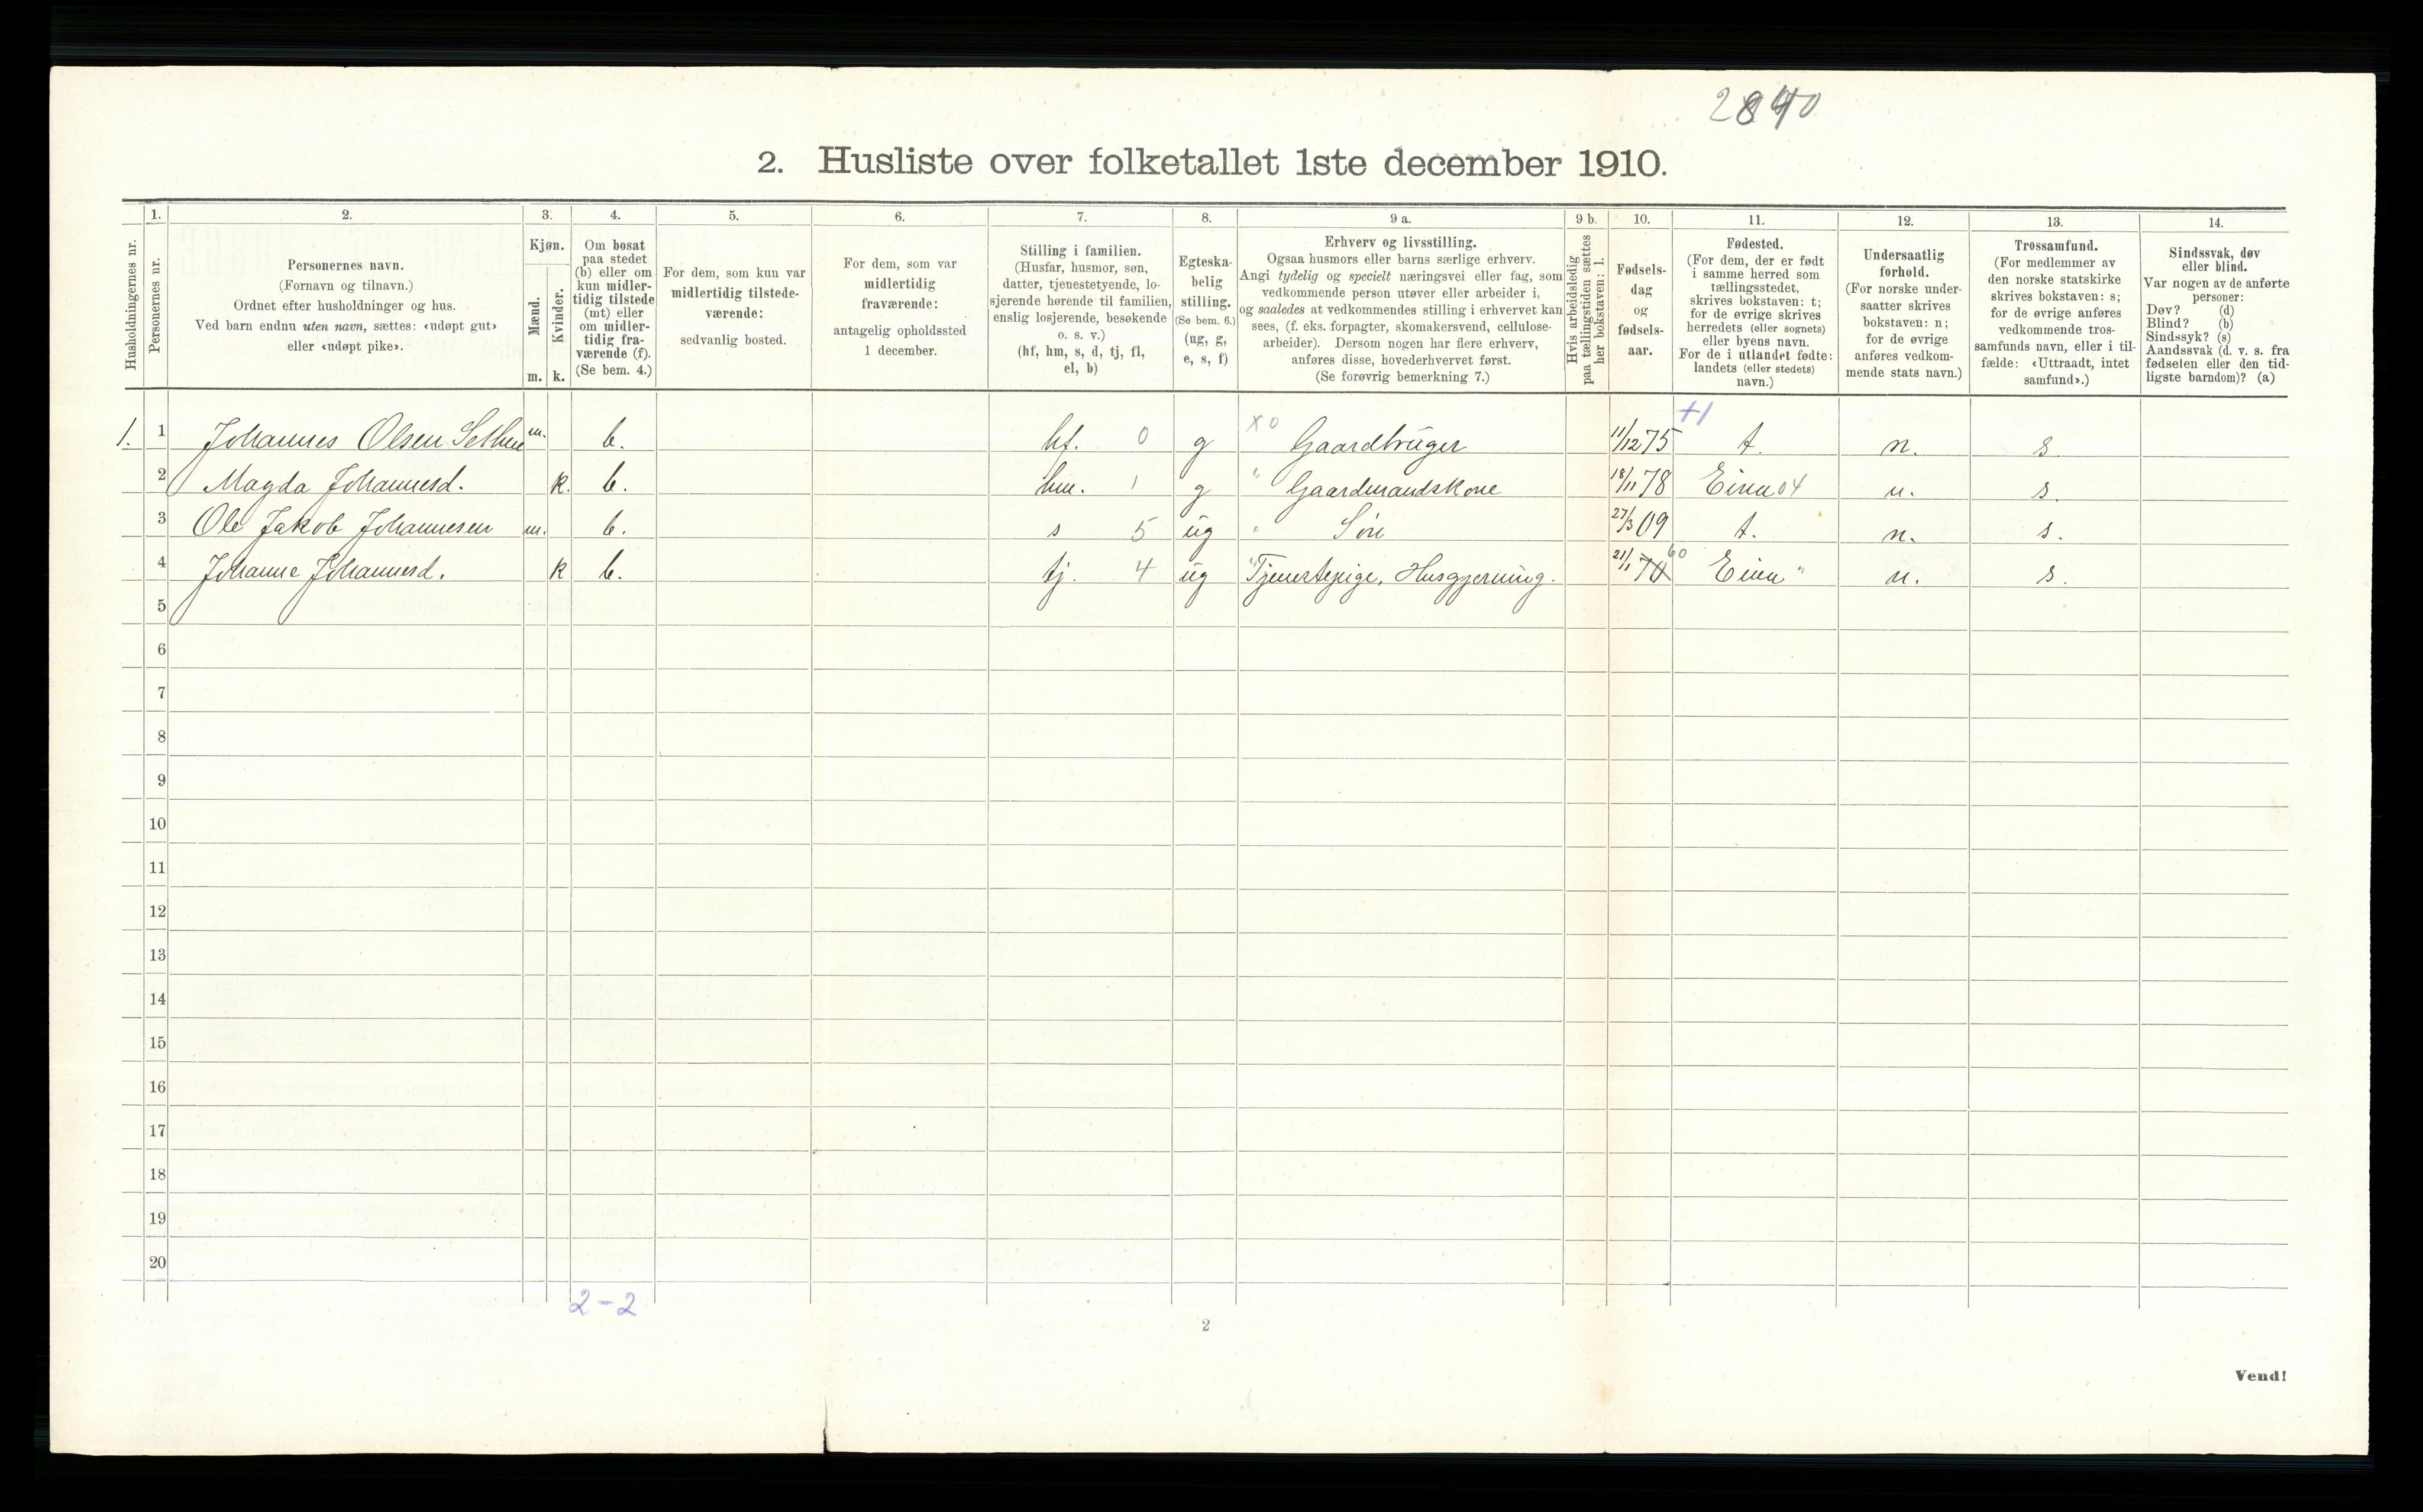 2840
2. Husliste over folketallet 1ste december 1910.
Husholdningernes nr.
1.
Personernes nr.
2.
Personernes navn.
(Fornavn og tilnavn.)
Ordnet efter husholdninger og hus.
Ved barn endnu uten navn, sættes: «udøpt gut»
eller «udøpt pike».
3.
Kjøn.
Mænd.
Kvinder.
m. k.
4.
Om bosat
paa stedet
(b) eller om
kun midler-
tidig tilstede
(mt) eller
om midler-
tidig fra-
værende (f).
(Se bem. 4.)
5.
For dem, som kun var
midlertidig tilstede-
værende:
sedvanlig bosted.
6.
For dem, som var
midlertidig
fraværende:
antagelig opholdssted
1 december.
7.
Stilling i familien.
(Husfar, husmor, søn,
datter, tjenestetyende, lo-
sjerende hørende til familien,
enslig losjerende, besøkende
o. s. v.)
(hf, hm, s, d, tj, fl,
el, b)
8.
Egteska-
belig
stilling.
(Se bem. 6.)
(ug, g,
e, s, f)
9 a.
Erhverv og livsstilling.
Ogsaa husmors eller barns særlige erhverv.
Angi tydelig og specielt næringsvei eller fag, som
vedkommende person utøver eller arbeider i,
og saaledes at vedkommendes stilling i erhvervet kan
sees, (f. eks. forpagter, skomakersvend, cellulose-
arbeider). Dersom nogen har flere erhverv,
anføres disse, hovederhvervet først.
(Se forøvrig bemerkning 7.)
9 b.
Hvis arbeidsledig
paa tællingstiden sættes
her bokstaven: l.
10.
Fødsels-
dag
og
fødsels-
aar.
11.
Fødested.
(For dem, der er født
i samme herred som
tællingsstedet,
skrives bokstaven: t;
for de øvrige skrives
herredets (eller sognets)
eller byens navn.
For de i utlandet fødte:
landets (eller stedets)
navn.)
12.
Undersaatlig
forhold.
(For norske under-
saatter skrives
bokstaven: n;
for de øvrige
anføres vedkom-
mende stats navn.)
13.
Trossamfund.
(For medlemmer av
den norske statskirke
skrives bokstaven: s;
for de øvrige anføres
vedkommende tros-
samfunds navn, eller i til-
fælde: «Uttraadt, intet
samfund».)
14.
Sindssvak, døv
eller blind.
Var nogen av de anførte
personer:
Døv? (d)
Blind? (b)
Sindssyk? (s)
Aandssvak (d. v. s. fra
fødselen eller den tid-
ligste barndom)? (a)
+1
1. 1 Johannes Olsen m. b. hf. 0 g x0 Gaardbruger 11/12 75 t. n. s.
2 Magda Johannesd. k. b. hm. 1 g " Gaardmandskone 18/11 78 Eina 04 n. s.
3 Ole Jakob Johannesen m. b. s 5 ug " Søn 27/3 09 t. n. s.
4 Johanne Johannesd. k b. tj. 4 ug "Tjenestepige, Husgjerning. 21/1 70 60 Eina " n. s.
5
6
7
8
9
10
11
12
13
14
15
16
17
18
19
20
2-2
2
Vend!